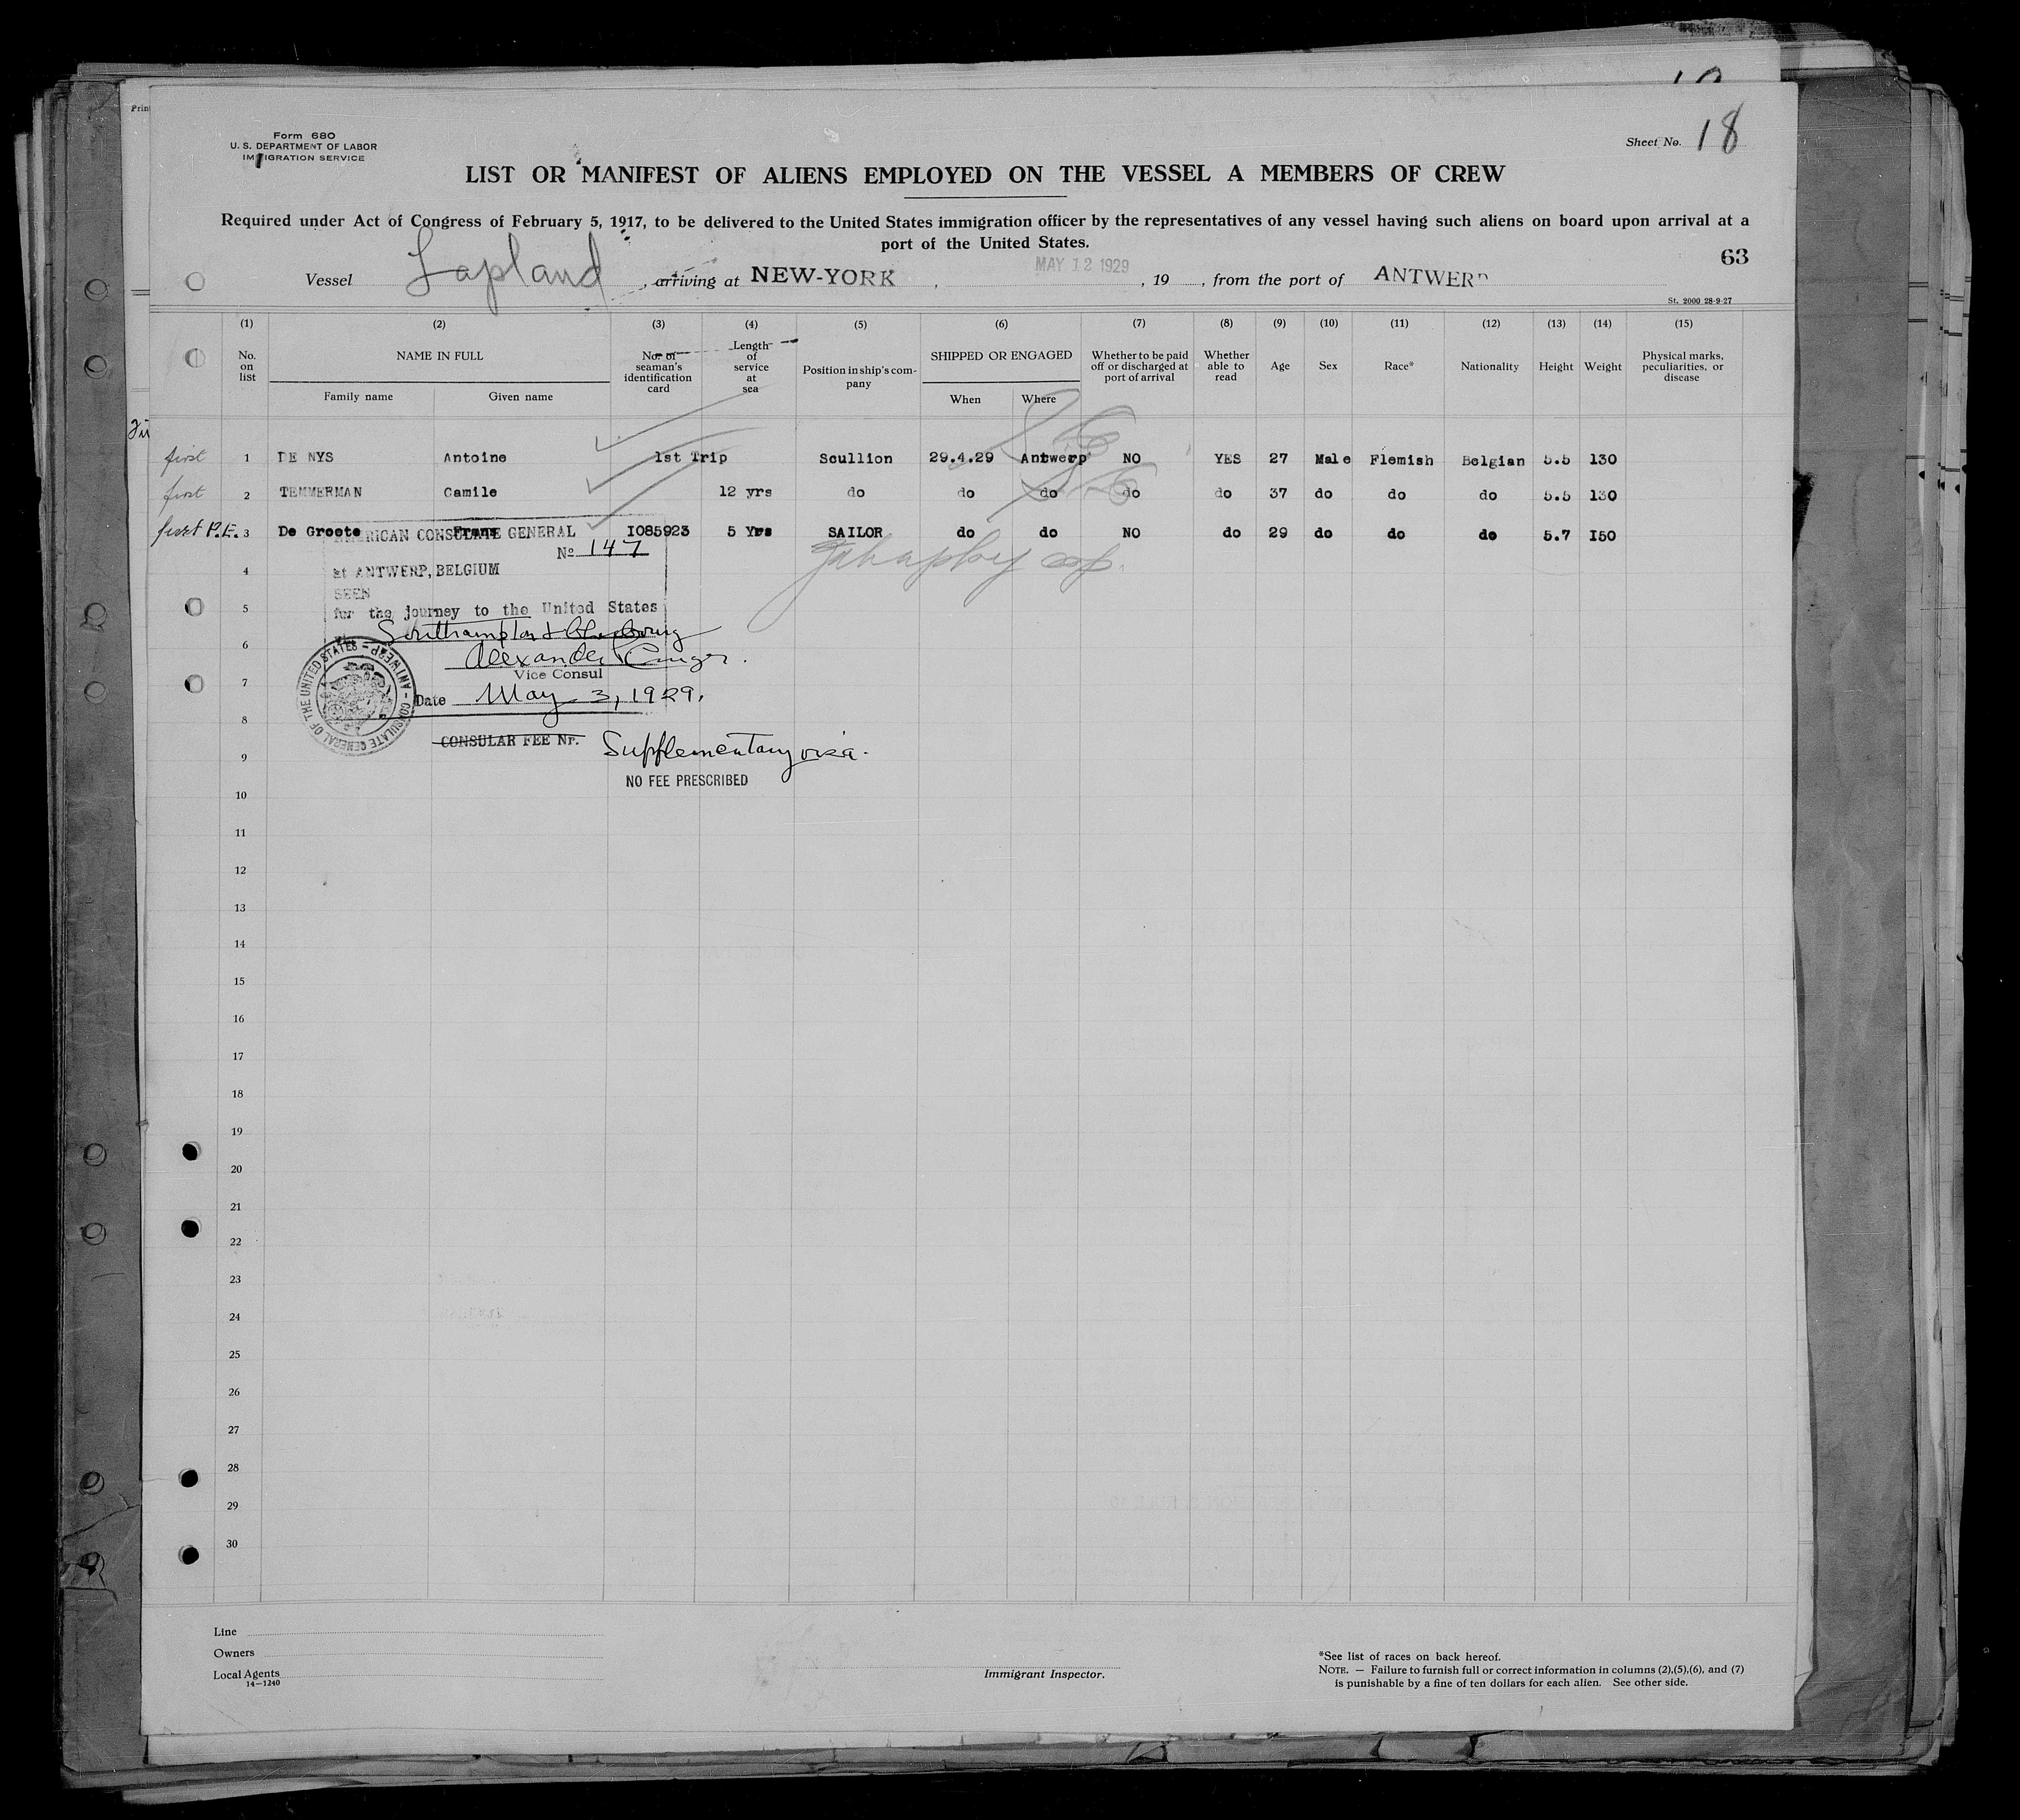 Form 680
U. S. DEPARTMENT OF LABOR
IMMIGRATION SERVICE
Sheet No. 18
LIST OR MANIFEST OF ALIENS EMPLOYED ON THE VESSEL A MEMBERS OF CREW
Required under Act of Congress of February 5, 1917, to be delivered to the United States immigration officer by the representatives of any vessel having such aliens on board upon arrival at a
port of the United States.
63
Vessel Lapland, arriving at NEW-YORK, MAY 12 1929, 19 , from the port of ANTWERP
St. 2000 28-9-27
(1) (2) (3) (4) (5) (6) (7) (8) (9) (10) (11) (12) (13) (14) (15)
No. on list NAME IN FULL No. of seaman's identification card Length of service at sea Position in ship's company SHIPPED OR ENGAGED Whether to be paid off or discharged at port of arrival Whether able to read Age Sex Race* Nationality Height Weight Physical marks, peculiarities, or disease
Family name Given name When Where
first 1 DE NYS Antoine 1st Trip Scullion 29.4.29 Antwerp NO YES 27 Male Flemish Belgian 5.5 130
first 2 TEMMERMAN Camile 12 yrs do do do do do 37 do do do 5.5 130
first P.E. 3 De Groote Frans I085923 5 Yrs SAILOR do do NO do 29 do do do 5.7 I50
AMERICAN CONSULATE GENERAL
No 147
4
at ANTWERP, BELGIUM
SEEN
5
for the journey to the United States
Southampton & Cherbourg
6
Alexander
Vice Consul
7
Date May 3, 1929.
CONSULATE GENERAL OF THE UNITED STATES - ANTWERP -
8
CONSULAR FEE Nr. Supplementary visa.
9
NO FEE PRESCRIBED
10
11
12
13
14
15
16
17
18
19
20
21
22
23
24
25
26
27
28
29
30
Line
Owners
Local Agents
14—1240
Immigrant Inspector.
*See list of races on back hereof.
NOTE. — Failure to furnish full or correct information in columns (2),(5),(6), and (7)
is punishable by a fine of ten dollars for each alien. See other side.